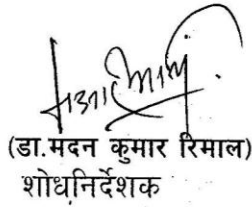 (डा.मदन कुमार रिमाल)
शोधनिर्देशक